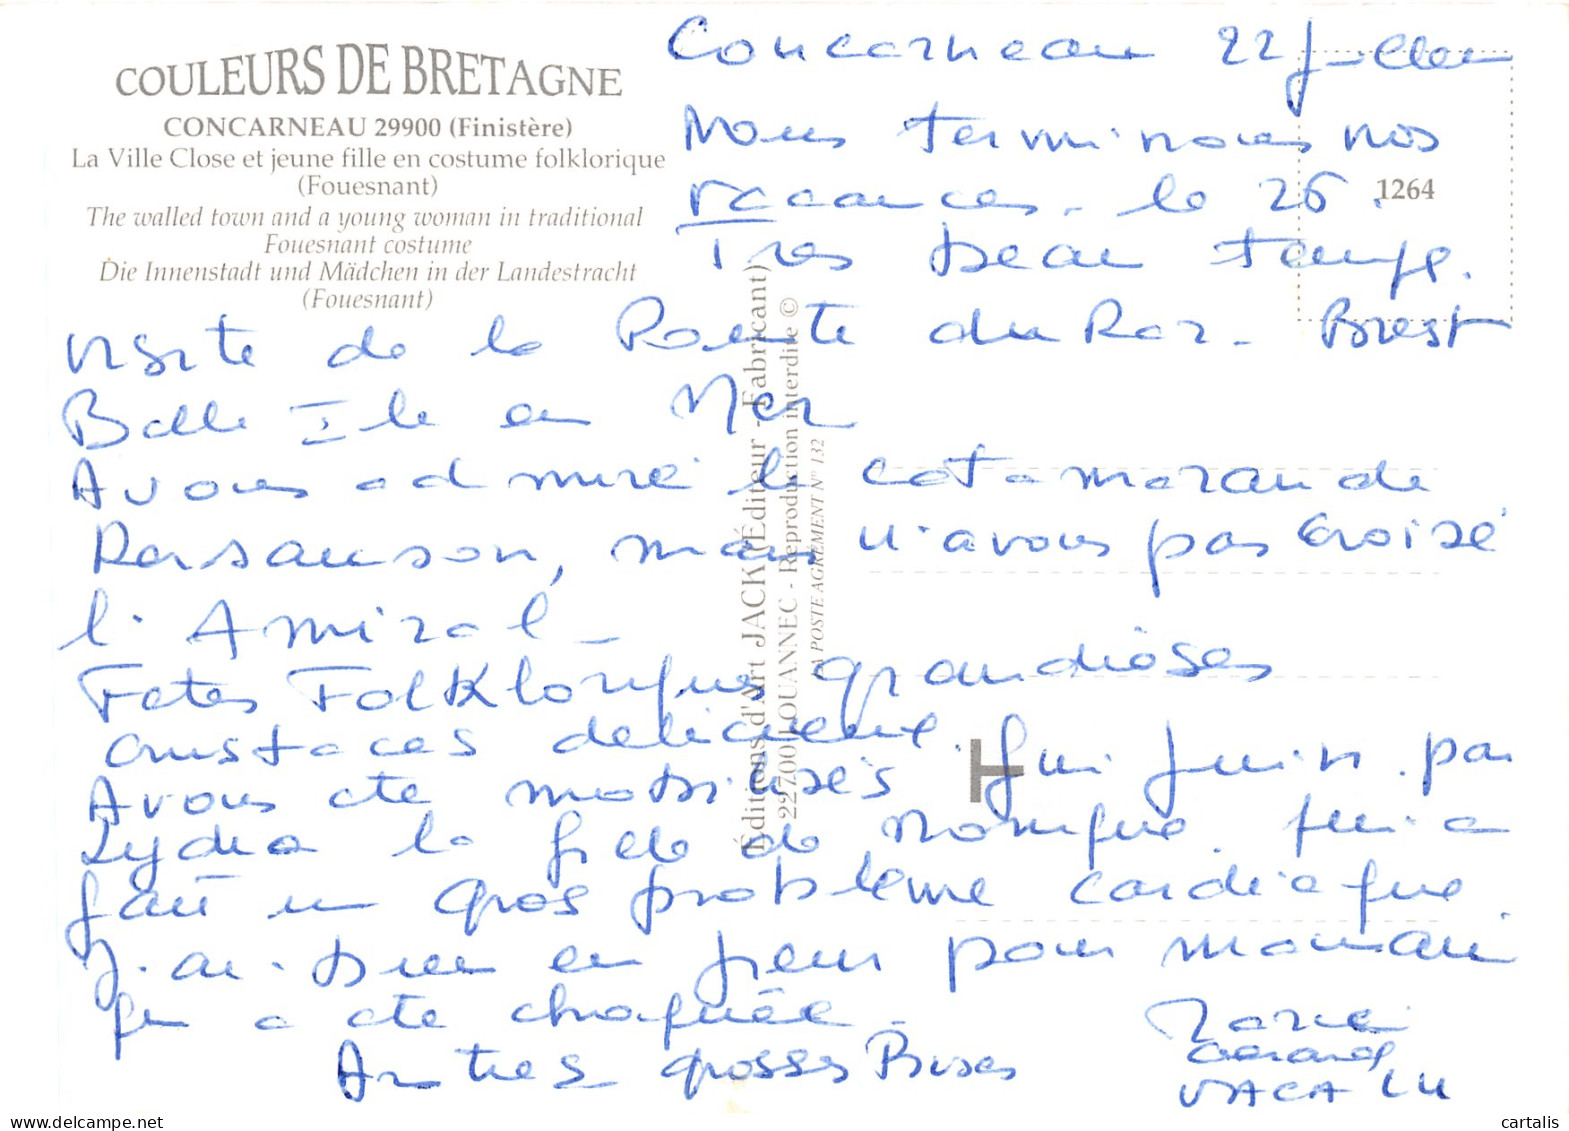 COULEURS DE BRETAGNE
CONCARNEAU 29900 (Finistère)
La Ville Close et jeune fille en costume folklorique
(Fouesnant)
The walled town and a young woman in traditional
Fouesnant costume
Die Innenstadt und Mädchen in der Landestracht
(Fouesnant)
1264
Concarneau 22 juillet
Nous terminons nos
vacances - le 26.
Tres beau temps.
visite de la Pointe du Raz - Brest
Belle Ile en Mer
Avons admiré le catamaran de
Kersauson, mais n'avons pas croisé
l'Amiral -
Fetes Folkloriques grandioses
crustaces delicieux.
Avons ete par
Lydia la fille de Monique. qui a
fait un gros problème cardiaque
J'ai bien eu peur pour maman
qui a ete choquée -
Autres grosses Bises
Marie
Éditions d'Art JACK (Éditeur - Fabricant)
22700 LOUANNEC - Reproduction interdite ©
LA POSTE AGRÉMENT N° 132
cartalis